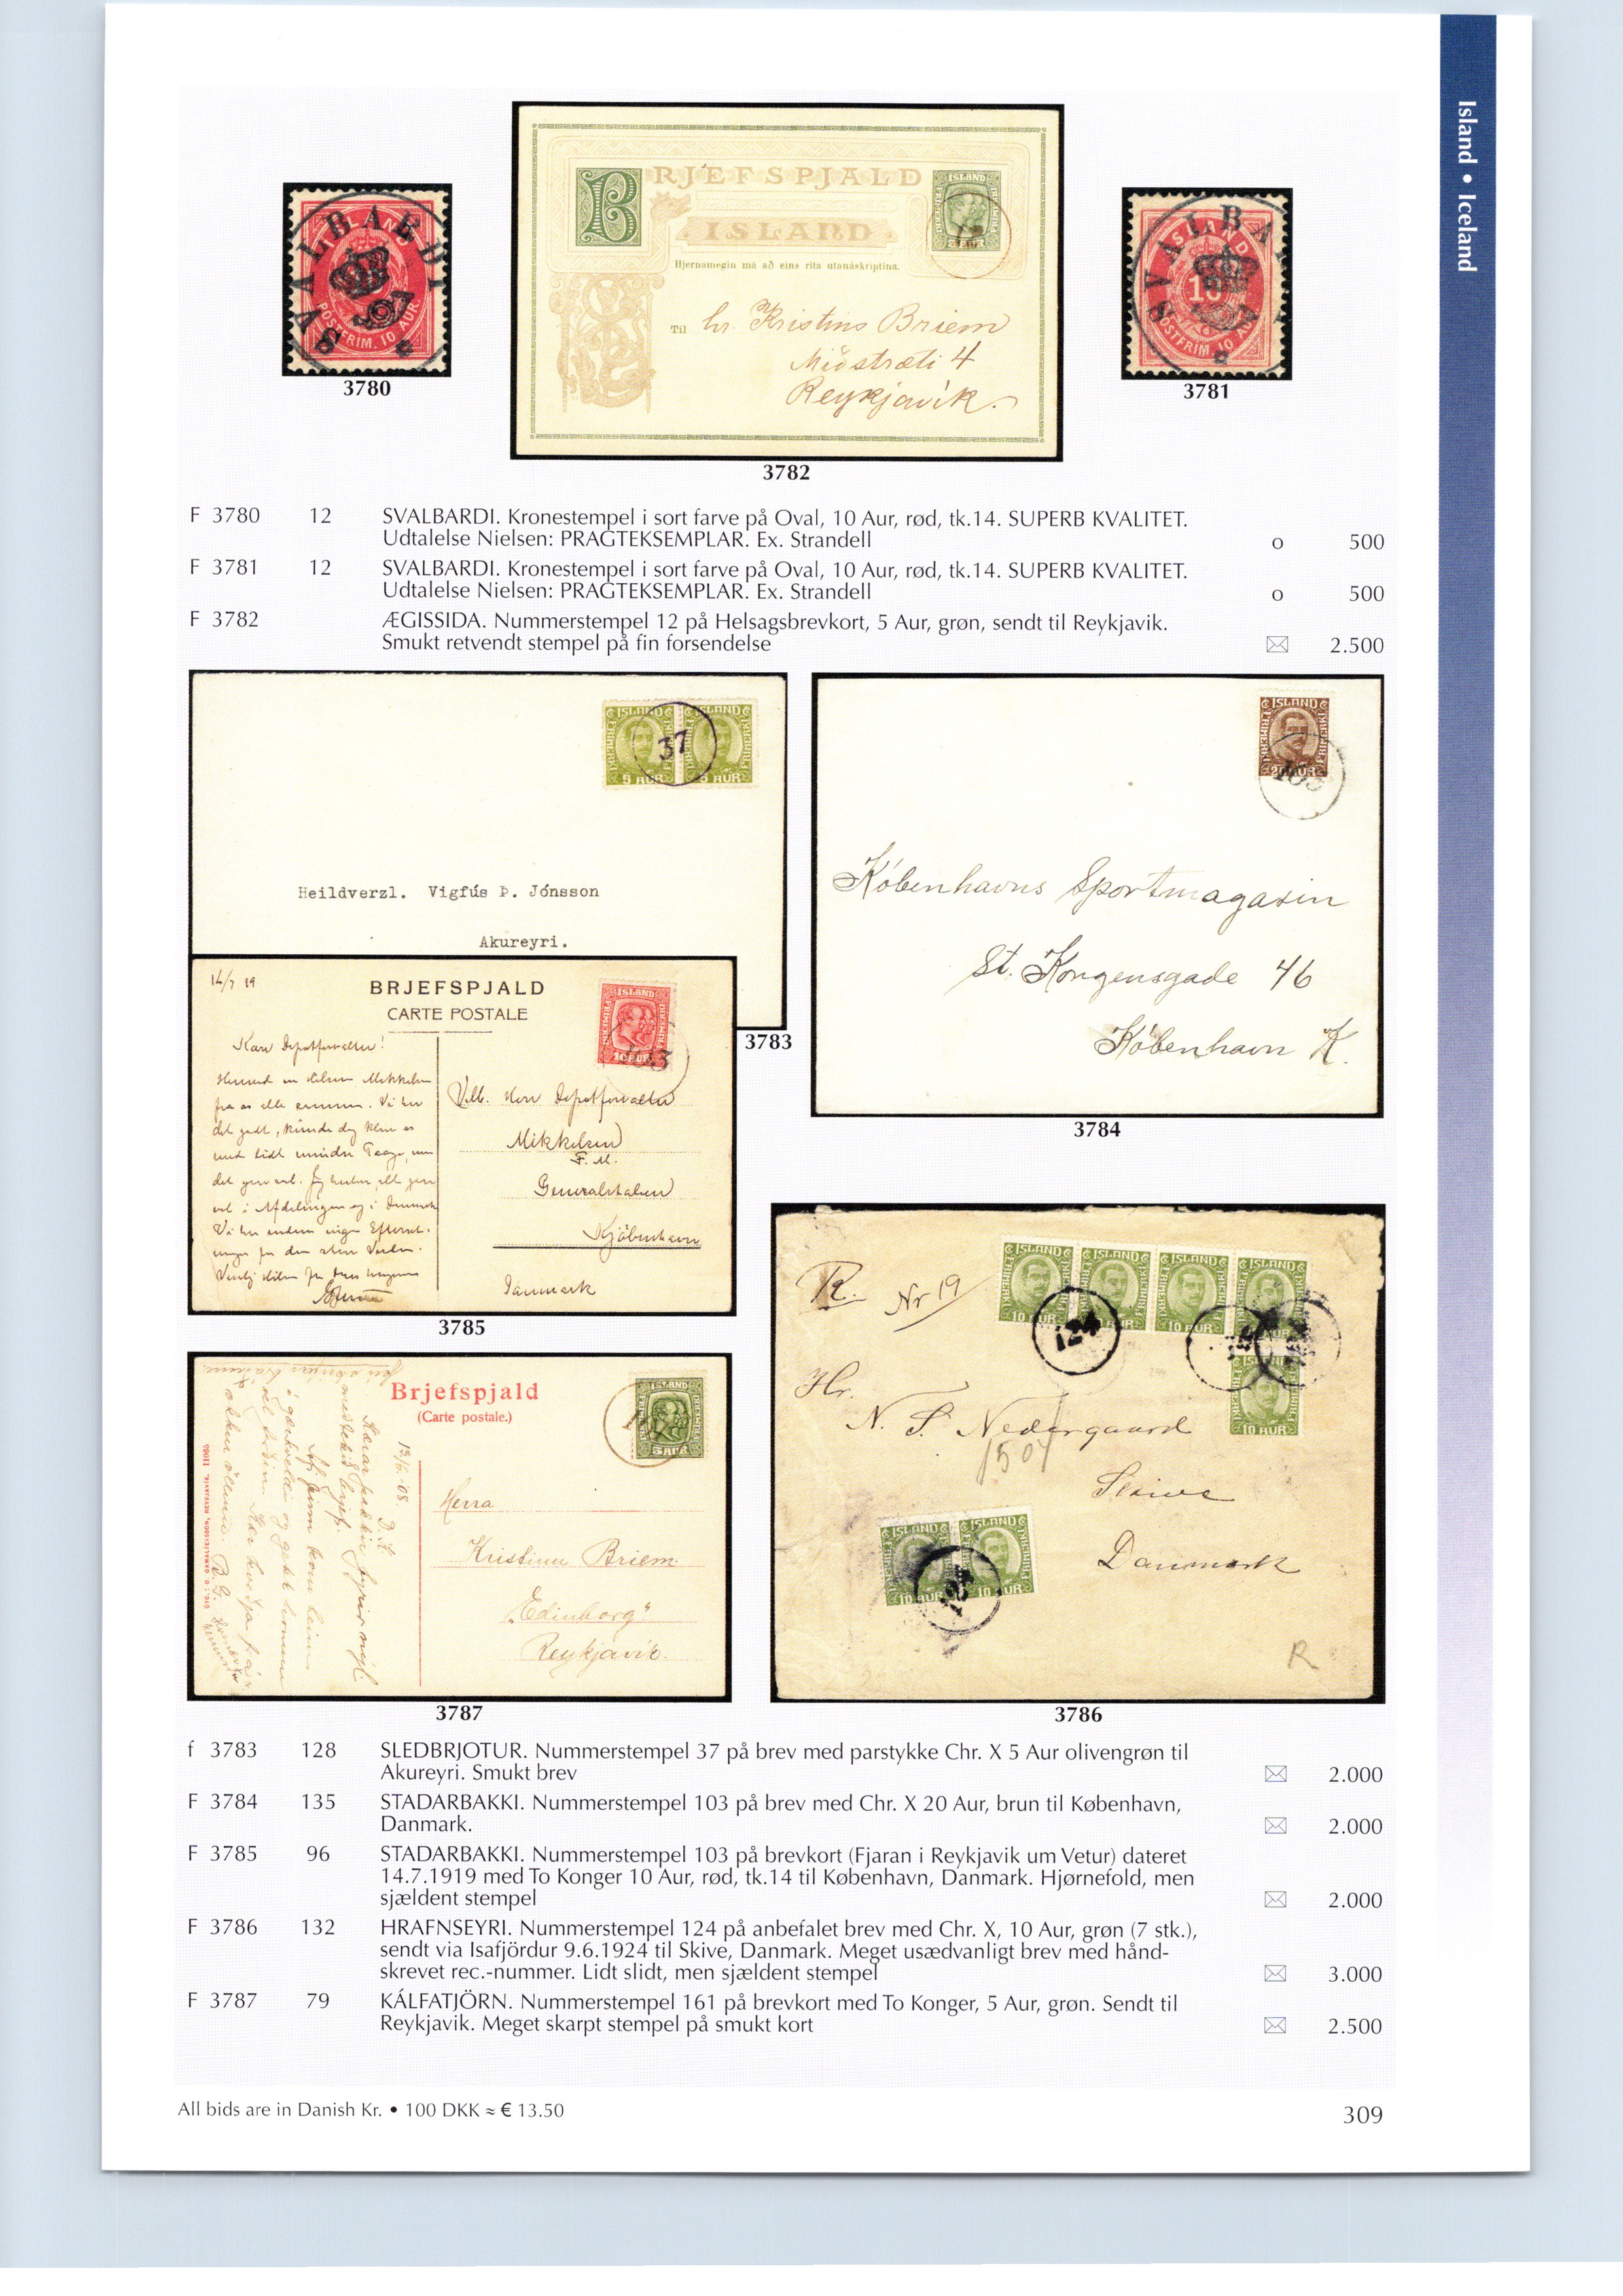 Island • Iceland
SVALBARDI
ÍSLAND
PÓSTFRIM. 10 AUR.
3780
BRJEFSPJALD
ISLAND
Hjernamegin má að eins rita utanáskriptina.
Til hr. Kristins Briem
Miðstræti 4
Reykjavík.
ÍSLAND
3782
SVALBA
ÍSLAND
10
PÓSTFRIM. 10 AU
3781
F 3780 12 SVALBARDI. Kronestempel i sort farve på Oval, 10 Aur, rød, tk.14. SUPERB KVALITET.
Udtalelse Nielsen: PRAGTEKSEMPLAR. Ex. Strandell o 500
F 3781 12 SVALBARDI. Kronestempel i sort farve på Oval, 10 Aur, rød, tk.14. SUPERB KVALITET.
Udtalelse Nielsen: PRAGTEKSEMPLAR. Ex. Strandell o 500
F 3782 ÆGISSIDA. Nummerstempel 12 på Helsagsbrevkort, 5 Aur, grøn, sendt til Reykjavik.
Smukt retvendt stempel på fin forsendelse 2.500
ÍSLAND ÍSLAND
37
5 AUR 5 AUR
Heildverzl. Vigfús Þ. Jónsson
Akureyri.
3783
ÍSLAND
20 AUR
103
Københavns Sportmagasin
St. Kongensgade 46
København K.
3784
14/7 19
BRJEFSPJALD
CARTE POSTALE
ÍSLAND
10 AUR
Kære Depotforvalter!
Velb. Herr Depotforvalter
Mikkelsen
F. M.
Generalstaben
Kjøbenhavn
Danmark
3785
R. Nr 19
ÍSLAND ÍSLAND ÍSLAND ÍSLAND
124
10 AUR
Hr.
N. S. Nedergaard
1504
Skive
Danmark
ÍSLAND ÍSLAND
10 AUR 10 AUR
R
3786
Brjefspjald
(Carte postale.)
ÍSLAND
5 AUR
13/6 '08
Herra
Kristinn Briem.
"Edinborg"
Reykjavík.
3787
f 3783 128 SLEDBRJOTUR. Nummerstempel 37 på brev med parstykke Chr. X 5 Aur olivengrøn til
Akureyri. Smukt brev 2.000
F 3784 135 STADARBAKKI. Nummerstempel 103 på brev med Chr. X 20 Aur, brun til København,
Danmark. 2.000
F 3785 96 STADARBAKKI. Nummerstempel 103 på brevkort (Fjaran i Reykjavik um Vetur) dateret
14.7.1919 med To Konger 10 Aur, rød, tk.14 til København, Danmark. Hjørnefold, men
sjældent stempel 2.000
F 3786 132 HRAFNSEYRI. Nummerstempel 124 på anbefalet brev med Chr. X, 10 Aur, grøn (7 stk.),
sendt via Isafjördur 9.6.1924 til Skive, Danmark. Meget usædvanligt brev med hånd-
skrevet rec.-nummer. Lidt slidt, men sjældent stempel 3.000
F 3787 79 KÁLFATJÖRN. Nummerstempel 161 på brevkort med To Konger, 5 Aur, grøn. Sendt til
Reykjavik. Meget skarpt stempel på smukt kort 2.500
All bids are in Danish Kr. • 100 DKK ≈ € 13.50
309